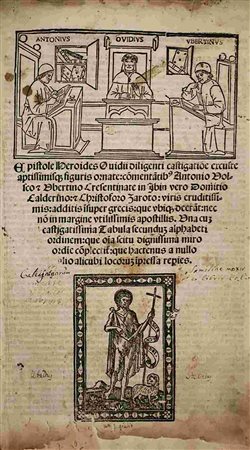 ANTONIVS OVIDIVS VBERTINVS
Epistole Heroides Ouidii diligenti castigatiõe excuse
aptissimisq; figuris ornate: cõmentãtib⁹ Antonio Vol⸗
sco ⁊ Vbertino Cresentinate in Ibin vero Domitio
Calderino ⁊ Christoforo Zaroto: viris eruditissi⸗
mis: additis insuper grecis: que vbiq; deerãt: nec
nõ in margine vtilissimis apostillis. Una cuz
castigatissima Tabula secunduz alphabeti
ordinem: que oĩa scitu dignissima miro
ordĩe cõplectit: que hactenus a nullo
alio alicubi locoruz ĩpressa repies.